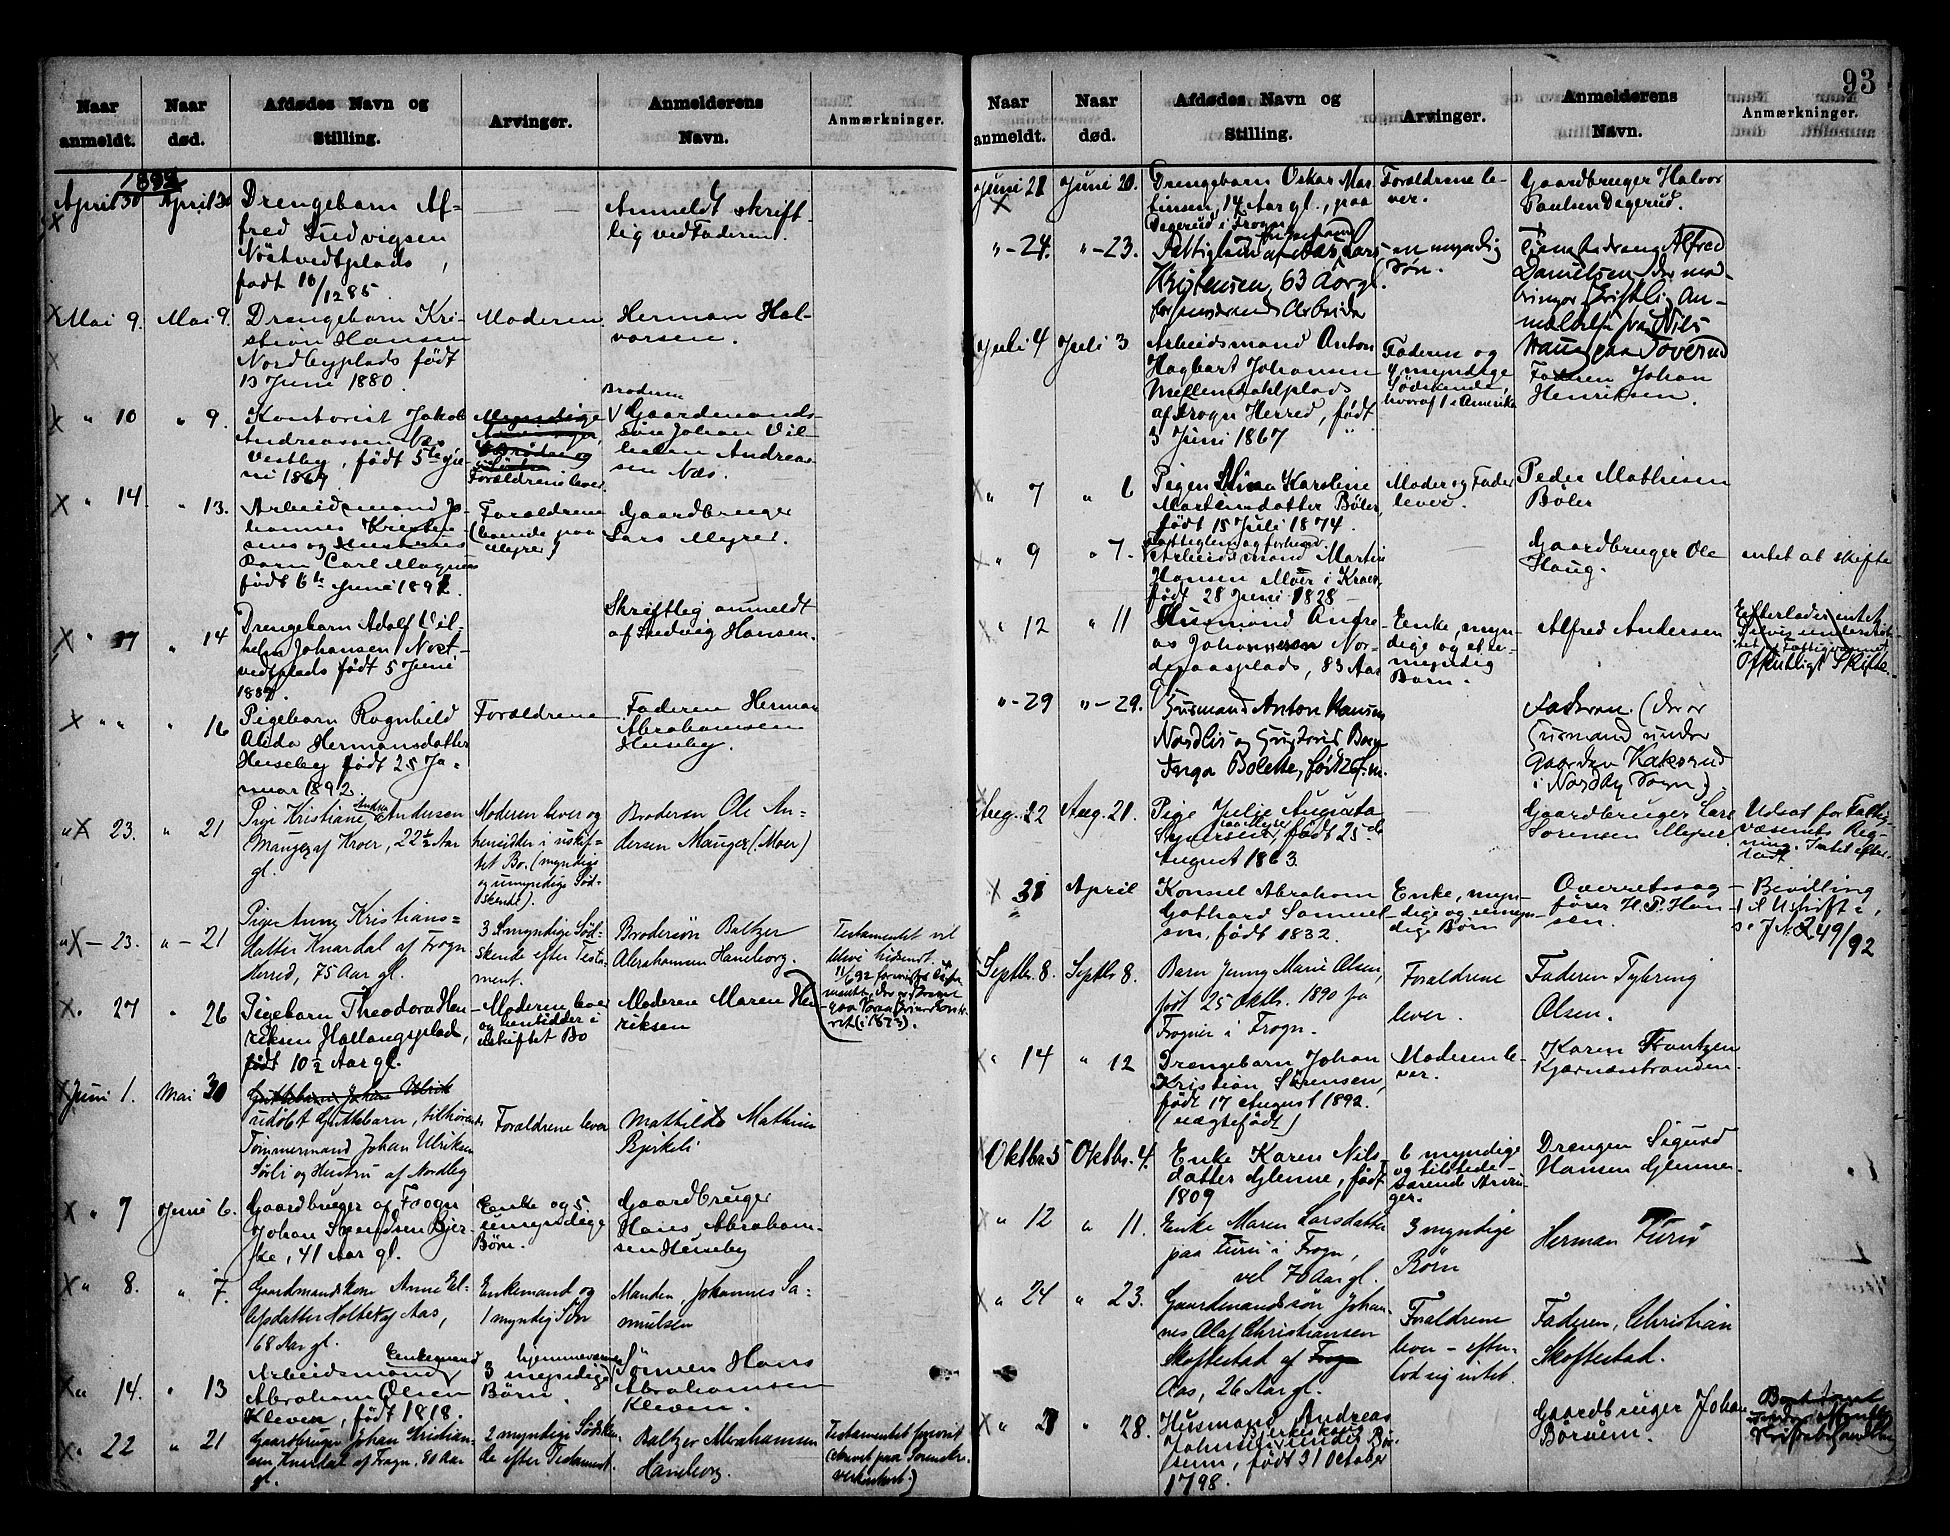 93
Naar anmeldt.
Naar død.
Afdødes Navn og Stilling.
Arvinger.
Anmelderens Navn.
Anmærkninger.
1892
April 30
April 30
Drengebarn Al-
fred Ludvigsen
Nöstvedtplads,
født 16/12 85.
Anmeldt skrift-
lig ved Faderen.
Mai 9.
Mai 9.
Drengebarn Kri-
stian Hansen
Nordbyplads født
13 Juni 1880.
Moderen.
Herman Hal-
vorsen.
" 10
" 9.
Kontorist Jakob
Andreassen Næs,
Vestby, født 5te
Forældrene lever.
Broderen
Gaardmands-
søn Johan Vil-
helm Andreas-
sen Næs.
" 14.
" 13.
Arbeidsmand Jo-
hannes Kristen-
sens og Hustrues
Barn Carl Magnus
født 6te Juni 1891.
Forældrene
(boende paa
Myrer)
Gaardbruger
Lars Myrer.
" 17
" 14
Drengebarn Adolf Vil-
helm Johansen Nöst-
vedtplads født 5 Juni
Skriftlig anmeldt
af Ludvig Hansen.
" "
" 16
Pigebarn Ragnhild
Alida Hermansdatter
Huseby født 25 Ja-
nuar 1892.
Forældrene
Faderen Herman
Abrahamsen
Huseby.
" 23.
" 21
Pige Kristiane Andrea Andersen
Mauger af Kroer, 22½ Aar
gl.
Moderen lever og
hensidder i uskif-
tet Bo. (myndige
og umyndige Sød-
skende).
Broderen Ole An-
dersen Mauger (Moer)
" - 23.
" - 21
Pige Anne Kristians-
datter Knardal af Frogn
Herred, 75 Aar gl.
3 myndige Sød-
skende efter Testa-
ment.
Brodersøn Baltzer
Abrahamsen Haneborg.
Testamentet vil
blive indsendt.
" 27
" 26
Pigebarn Theodora Hen-
riksen Hallangsplads,
født 10½ Aar gl.
Moderen lever
og hensidder i
uskiftet Bo
Moderen Maren Hen-
riksen
Juni 1.
Mai 30
udøbt Guttebarn, tilhørende
Tømmermand Johan Ulriksen
Sørli og Hustru af Nordby
Forældrene lever
Mathilde Mathisen
Bjerkeli
" 7
Juni 6.
Gaardbruger af Frogn
Johan Svendsen Bjer-
ke, 41 Aar gl.
Enke og 5
umyndige
Börn.
Gaardbruger
Hans Abraham-
sen Huseby
" 8.
" 7.
Gaardmandskone Anne El-
efsdatter Holtek af Aas,
68 Aar gl.
Enkemand og
1 myndig Søn
Manden, Johannes Sa-
muelsen
" 14.
" 13
Enkemand
Arbeidsmand
Abraham Olsen
Kleven, født 1818.
hjemmeværende
3 myndige
Börn.
Sønnen Hans
Abrahamsen
Kleven.
" 22
" 21
Gaardbruger Johan Kristian-
sen Knardal af Frogn, 80 Aar
gl.
2 myndige Sødsken-
de efter Testament.
Baltzer Abrahamsen
Haneborg.
Testamentet forevist
Naar anmeldt.
Naar død.
Afdødes Navn og Stilling.
Arvinger.
Anmelderens Navn.
Anmærkninger.
Juni 21
Juni 20.
Drengebarn Oskar Mar-
tinsen, 14 Aar gl., paa
Degerud i Frogn
Forældrene le-
ver.
Gaardbruger Halvor
Paulsen Degerud.
" - 24.
" - 23.
Kristensen, 63 Aar gl.
forhenværende Arbeider
en myndig
Søn.
Tjenestedreng Alfred
Danielsen, der med-
bringer skriftlig An-
meldelse fra Nils
Haug paa Toverud
Juli 4
Juli 3
Arbeidsmand Anton
Hagbart Johansen
Mellemdahlplads
af Frogn Herred, født
3 Juni 1867
Faderen og
4 myndige
Södskende,
hvoraf 1 i Amerika
Faderen Johan
Henriksen.
" 7
" 6
Pigen Karoline
Martinsdatter Böler,
født 15 Juli 1874.
Moder og Fader
lever.
Peder Mathisen
Böler
" 9
" 7.
Fattiglem og forhenv.
Arbeidsmand Martin
Hansen Moer i Kroer,
født 28 Juni 1828
Gaardbruger Ole
Haug.
intet at skifte
" 12
" 11
Husmand Andre-
as Johannesen Nor-
deraasplads, 83 Aar
Enke, myn-
dige og et u-
myndig
Barn.
Alfred Andersen
Efterlader intet,
Offentligt Skifte.
" - 29
" - 29.
Husmand Anton Hansen
Nordlis og Hustrues Barn
Inga Bolette, født
Faderen. (der er
Husmand under
Gaarden Kaksrud
i Nordby Sogn)
Aug. 22
Aug. 21.
Pige Julie Augusta
født 25de
August 1863
Gaardbruger Lars
Sørensen Myrer
Udsat for Fattig-
væsenets Reg-
ning. Intet efter-
ladt
" 31
April
Konsul Abraham
Gothard Samuel-
son, født 1832.
Enke, myn-
dige og umyn-
dige Børn
Overretssag-
fører H. P. Han-
sen.
Bevilling
til Uskifte,
se J.N. 249/92
Septb. 8.
Septb 8.
Barn Jenny Marie Olsen,
født 25 Oktb. 1890 fra
Frogner i Frogn.
Forældrene
lever.
Faderen Tybring
Olsen.
" 14
" 12
Drengebarn Johan
Kristian Sörensen,
født 17 August 1892.
(uægtefødt)
Moderen le-
ver.
Karen Frantzen
Kjærnæsstranden.
Oktbr. 5
Oktbr. 4.
Enke Karen Nils-
datter Glenne, født
1809
6 myndige
og tilstede-
værende Arvin-
ger.
Drengen Sigurd
Hansen Glenne.
" 12
" 11.
Enke Maren Larsdatter
paa Turu i Frogn,
vel 70 Aar gl.
3 myndige
Børn
Herman
" 24
" 23.
Gaardmandssøn Johan-
nes Olaf Christiansen
Skoftestad af Frogn
Aas, 26 Aar gl.
Forældrene
lever - efter-
lod sig intet.
Faderen, Christian
Skoftestad.
" 28
" 28.
Husmand Andreas
Johnsen Bjerkeskov
under Bø-
rsum, født 31 October
1798.
Gaardbruger Johan
Börsum.